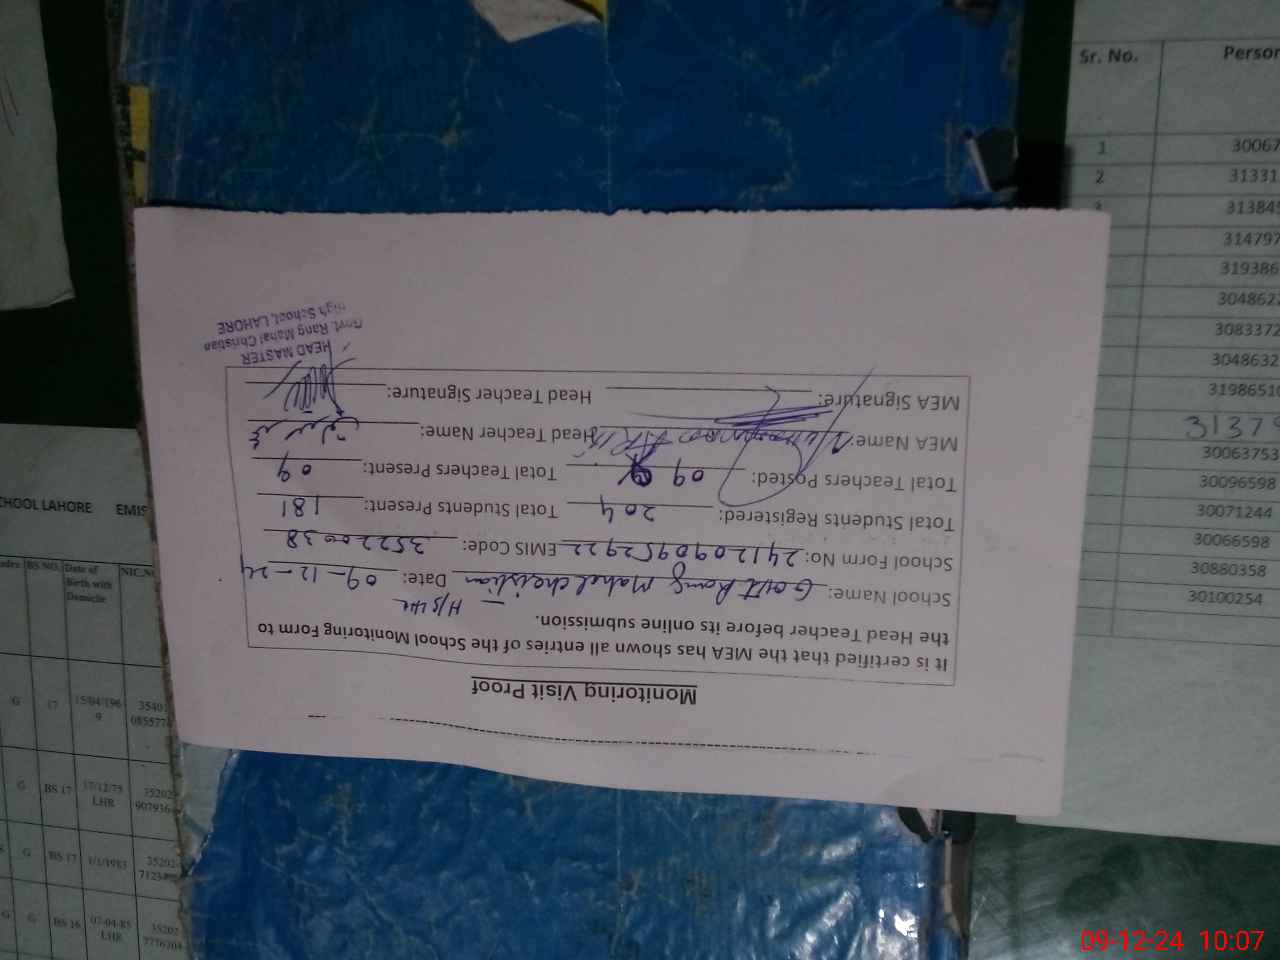 Monitoring Visit Proof
It is certified that the MEA has shown all entries of the School Monitoring Form to
the Head Teacher before its online submission.
School Name: Govt Rang Mahal Christian H/S LHR Date: 09-12-24
School Form No: 2412090952922 EMIS Code: 35220038
Total Students Registered: 204 Total Students Present: 181
Total Teachers Posted: 09 Total Teachers Present: 09
MEA Name: Head Teacher Name:
MEA Signature: Head Teacher Signature:
HEAD MASTER
Govt. Rang Mahal Christian
High School, LAHORE
Sr. No. Person
1 30067
2 31331
3 313845
314797
319386
3048622
3083372
3048632
3198651
3137
30063753
30096598
30071244
30066598
30880358
30100254
CHOOL LAHORE EMIS
BS NO. Date of Birth with Domicile NIC.NO
G 17 15/04/1969 35401
085577
G BS 17 17/12/75 LHR 35202
907936
G BS 17 1/1/1983 35202
7123
G G BS 16 07-04-85 LHR 35202
7776304
09-12-24 10:07